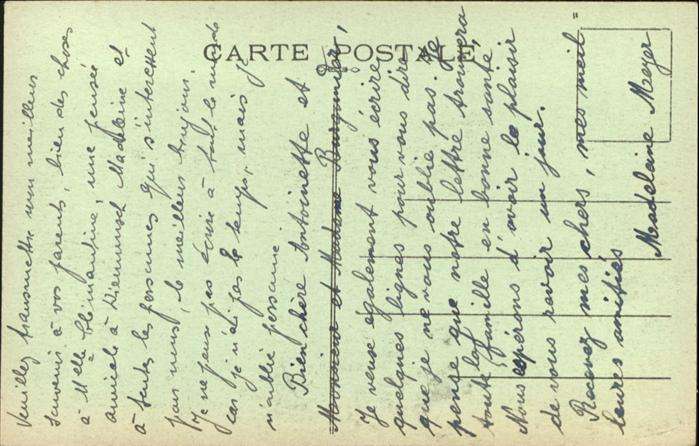 CARTE POSTALE
Veuillez transmettre mon meilleur
souvenir à vos parents, bien des choses
à Melle Clémentine, une pensée
amicale à Madeleine et
à toutes les personnes qui s'intéressent
pour nous, le meilleur bonjour.
Je ne peux pas écrire à tout le monde
car je n'ai pas le temps, mais j'
n'oublie personne.
Bien chère Antoinette et
Monsieur et Madame
Je veux également vous écrire
quelques lignes pour vous dire
que je ne vous oublie pas. Je
pense que notre lettre trouvera
toute la famille en bonne santé.
Nous espérons d'avoir le plaisir
de vous revoir un jour.
Recevez mes chers, mes meil
leures amitiés
Madeleine Meyer